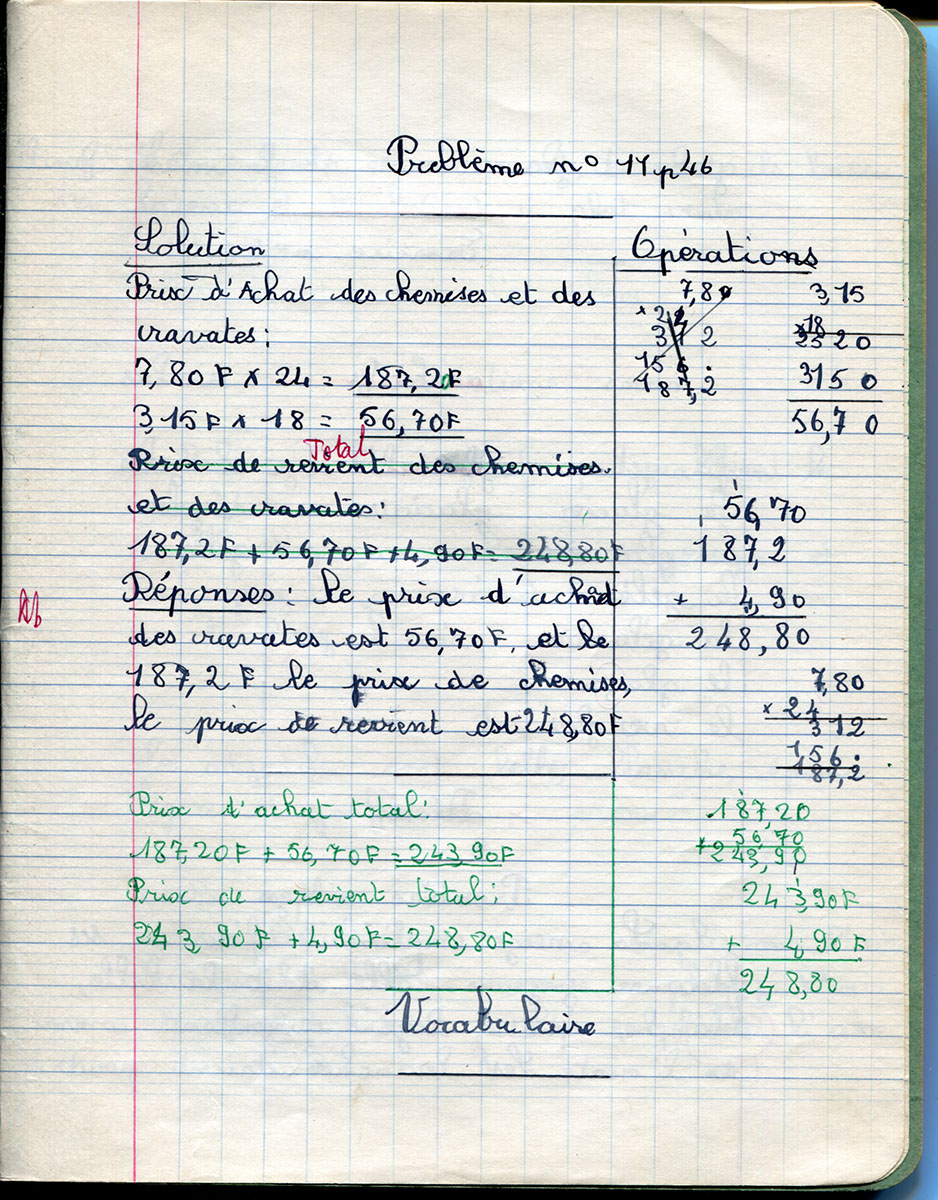 Problème no 11 p46
Solution
Prix d'Achat des chemises et des
cravates:
7,80 F × 24 = 187,20F
3,15 F × 18 = 56,70F
Total
Prix de revient des chemises
et des cravates:
187,2 F + 56,70F + 4,90F = 248,80F
Réponses : le prix d'achat
des cravates est 56,70F, et le
187,2 F le prix de chemises,
le prix de revient est 248,80F
Prix d'achat total:
187,20F + 56,70F = 243,90F
Prix de revient total:
243,90F + 4,90F = 248,80F
Opérations
7,80
× 24
312
156.
187,2
3,15
×18
2520
3150
56,70
1
56,70
1
187,2
+ 4,90
248,80
7,80
× 24
312
156.
187,2
1
187,20
+ 56,70
243,90
1
243,90F
+ 4,90F
248,80
Vocabulaire